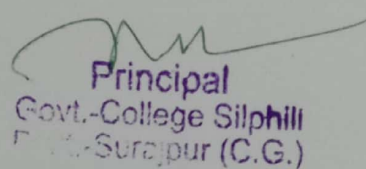 Principal
Govt.-College Silphili
-Surajpur (C.G.)